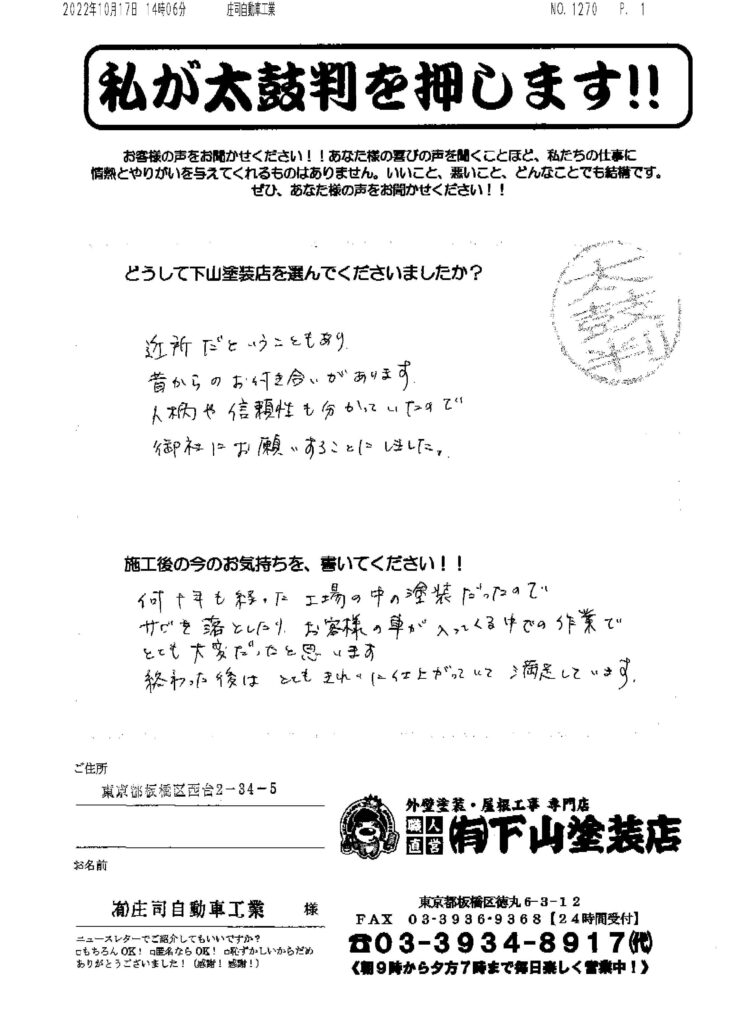 2022年10月17日 14時06分 庄司自動車工業 NO.1270 P. 1
私が太鼓判を押します!!
お客様の声をお聞かせください！！あなた様の喜びの声を聞くことほど、私たちの仕事に
情熱とやりがいを与えてくれるものはありません。いいこと、悪いこと、どんなことでも結構です。
ぜひ、あなた様の声をお聞かせください！！
どうして下山塗装店を選んでくださいましたか？
太鼓判
近所だということもあり
昔からのお付き合いがあります。
人柄や信頼性も分かっていたので
御社にお願いすることにしました。
施工後の今のお気持ちを、書いてください！！
何十年も経った工場の中の塗装だったので
サビを落としたり、お客様の車が入ってくる中での作業で
とても大変だったと思います
終わった後は とてもきれいに仕上がっていて 満足しています。
ご住所
東京都板橋区西台2-34-5
お名前
㈲庄司自動車工業 様
ニュースレターでご紹介してもいいですか？
□もちろんOK！ □匿名ならOK！ □恥ずかしいからだめ
ありがとうございました！（感謝！感謝！）
外壁塗装・屋根工事 専門店
職人直営 ㈲下山塗装店
東京都板橋区徳丸6-3-12
FAX 03-3936-9368【24時間受付】
☎03-3934-8917㈹
《朝9時から夕方7時まで毎日楽しく営業中！》